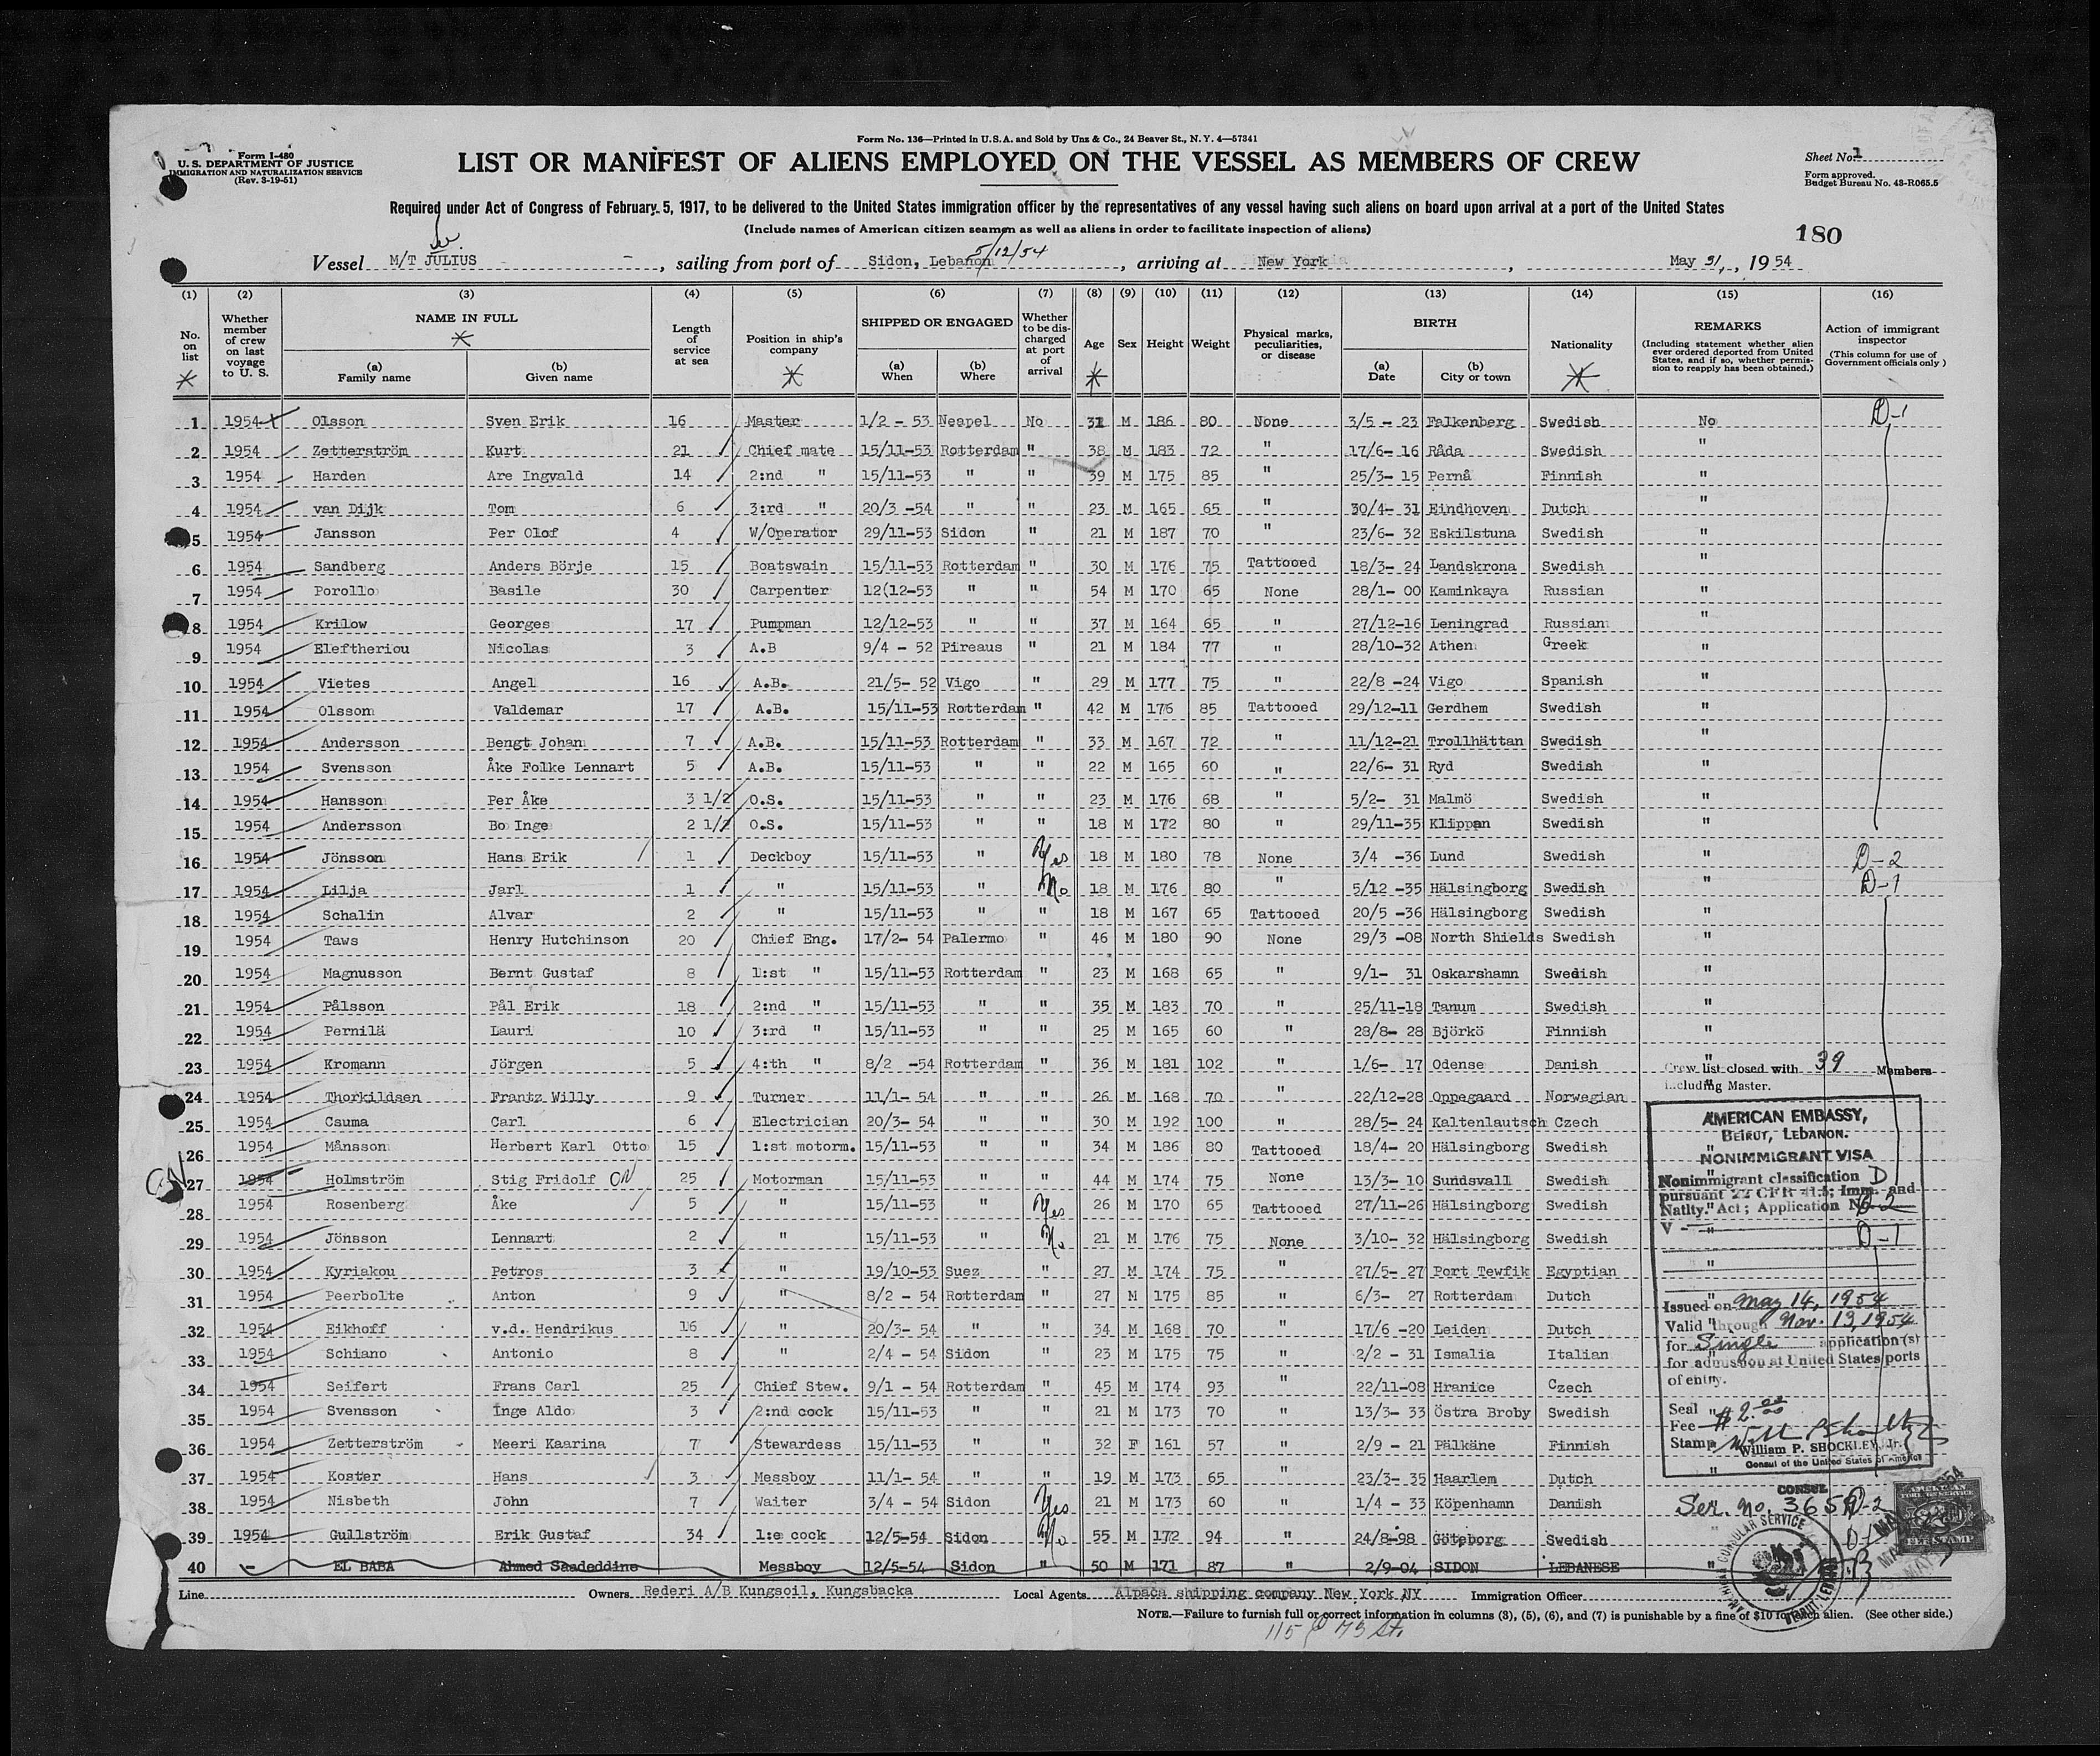 Form No. 136—Printed in U.S.A. and Sold by Unz & Co., 24 Beaver St., N. Y. 4—57341
Form I-480
U. S. DEPARTMENT OF JUSTICE
IMMIGRATION AND NATURALIZATION SERVICE
(Rev. 3-19-51)
LIST OR MANIFEST OF ALIENS EMPLOYED ON THE VESSEL AS MEMBERS OF CREW
Sheet No. 1
Form approved.
Budget Bureau No. 43-R065.5
Required under Act of Congress of February 5, 1917, to be delivered to the United States immigration officer by the representatives of any vessel having such aliens on board upon arrival at a port of the United States
(Include names of American citizen seamen as well as aliens in order to facilitate inspection of aliens)
180
5/12/54
Vessel M/T JULIUS, sailing from port of Sidon, Lebanon, arriving at New York, May 31, 1954
(1) (2) (3) (4) (5) (6) (7) (8) (9) (10) (11) (12) (13) (14) (15) (16)
No. on list
Whether member of crew on last voyage to U. S.
NAME IN FULL
(a) Family name
(b) Given name
Length of service at sea
Position in ship's company
SHIPPED OR ENGAGED
(a) When
(b) Where
Whether to be discharged at port of arrival
Age
Sex
Height
Weight
Physical marks, peculiarities, or disease
BIRTH
(a) Date
(b) City or town
Nationality
REMARKS
(Including statement whether alien ever ordered deported from United States, and if so, whether permission to reapply has been obtained.)
Action of immigrant inspector
(This column for use of Government officials only)
1 1954 Olsson Sven Erik 16 Master 1/2 - 53 Neapel No 31 M 186 80 None 3/5 - 23 Falkenberg Swedish No D-1
2 1954 Zetterström Kurt 21 Chief mate 15/11-53 Rotterdam " 38 M 183 72 " 17/6- 16 Råda Swedish "
3 1954 Harden Are Ingvald 14 2:nd " 15/11-53 " " 39 M 175 85 " 25/3- 15 Pernå Finnish "
4 1954 van Dijk Tom 6 3:rd " 20/3 -54 " " 23 M 165 65 " 30/4- 31 Eindhoven Dutch "
5 1954 Jansson Per Olof 4 W/Operator 29/11-53 Sidon " 21 M 187 70 " 23/6- 32 Eskilstuna Swedish "
6 1954 Sandberg Anders Börje 15 Boatswain 15/11-53 Rotterdam " 30 M 176 75 Tattooed 18/3- 24 Landskrona Swedish "
7 1954 Porollo Basile 30 Carpenter 12(12-53 " " 54 M 170 65 None 28/1- 00 Kaminkaya Russian "
8 1954 Krilow Georges 17 Pumpman 12/12-53 " " 37 M 164 65 " 27/12-16 Leningrad Russian "
9 1954 Eleftheriou Nicolas 3 A.B 9/4 - 52 Pireaus " 21 M 184 77 " 28/10-32 Athen Greek "
10 1954 Vietes Angel 16 A.B. 21/5- 52 Vigo " 29 M 177 75 " 22/8 -24 Vigo Spanish "
11 1954 Olsson Valdemar 17 A.B. 15/11-53 Rotterdam " 42 M 176 85 Tattooed 29/12-11 Gerdhem Swedish "
12 1954 Andersson Bengt Johan 7 A.B. 15/11-53 Rotterdam " 33 M 167 72 " 11/12-21 Trollhättan Swedish "
13 1954 Svensson Åke Folke Lennart 5 A.B. 15/11-53 " " 22 M 165 60 " 22/6- 31 Ryd Swedish "
14 1954 Hansson Per Åke 3 1/2 O.S. 15/11-53 " " 23 M 176 68 " 5/2- 31 Malmö Swedish "
15 1954 Andersson Bo Inge 2 1/2 O.S. 15/11-53 " " 18 M 172 80 " 29/11-35 Klippan Swedish "
16 1954 Jönsson Hans Erik 1 Deckboy 15/11-53 " Yes 18 M 180 78 None 3/4 -36 Lund Swedish " D-2
17 1954 Lilja Jarl 1 " 15/11-53 " No 18 M 176 80 " 5/12 -35 Hälsingborg Swedish " D-1
18 1954 Schalin Alvar 2 " 15/11-53 " " 18 M 167 65 Tattooed 20/5 -36 Hälsingborg Swedish "
19 1954 Taws Henry Hutchinson 20 Chief Eng. 17/2- 54 Palermo " 46 M 180 90 None 29/3 -08 North Shields Swedish "
20 1954 Magnusson Bernt Gustaf 8 1:st " 15/11-53 Rotterdam " 23 M 168 65 " 9/1- 31 Oskarshamn Swedish "
21 1954 Pålsson Pål Erik 18 2:nd " 15/11-53 " " 35 M 183 70 " 25/11-18 Tanum Swedish "
22 1954 Pernilä Lauri 10 3:rd " 15/11-53 " " 25 M 165 60 " 28/8- 28 Björkö Finnish "
23 1954 Kromann Jörgen 5 4:th " 8/2 -54 Rotterdam " 36 M 181 102 " 1/6- 17 Odense Danish "
24 1954 Thorkildsen Frantz Willy 9 Turner 11/1- 54 " " 26 M 168 70 " 22/12-28 Oppegaard Norwegian "
25 1954 Csuma Carl 6 Electrician 20/3- 54 " " 30 M 192 100 " 28/5- 24 Kaltenlautsch Czech
26 1954 Månsson Herbert Karl Otto 15 1:st motorm. 15/11-53 " " 34 M 186 80 Tattooed 18/4- 20 Hälsingborg Swedish "
27 1954 Holmström Stig Fridolf 25 Motorman 15/11-53 " " 44 M 174 75 None 13/3- 10 Sundsvall Swedish "
28 1954 Rosenberg Åke 5 " 15/11-53 " Yes 26 M 170 65 Tattooed 27/11-26 Hälsingborg Swedish " D-2
29 1954 Jönsson Lennart 2 " 15/11-53 " No 21 M 176 75 None 3/10- 32 Hälsingborg Swedish " D-1
30 1954 Kyriakou Petros 3 " 19/10-53 Suez " 27 M 174 75 " 27/5- 27 Port Tewfik Egyptian "
31 1954 Peerbolte Anton 9 " 8/2 - 54 Rotterdam " 27 M 175 85 " 6/3- 27 Rotterdam Dutch "
32 1954 Eikhoff v.d. Hendrikus 16 " 20/3- 54 " " 34 M 168 70 " 17/6 -20 Leiden Dutch "
33 1954 Schiano Antonio 8 " 2/4 - 54 Sidon " 23 M 175 75 " 2/2 - 31 Ismalia Italian "
34 1954 Seifert Frans Carl 25 Chief Stew. 9/1 - 54 Rotterdam " 45 M 174 93 " 22/11-08 Hranice Czech
35 1954 Svensson Inge Aldo 3 2:nd cock 15/11-53 " " 21 M 173 70 " 13/3- 33 Östra Broby Swedish "
36 1954 Zetterström Meeri Kaarina 7 Stewardess 15/11-53 " " 32 F 161 57 " 2/9 - 21 Pälkäne Finnish "
37 1954 Koster Hans 3 Messboy 11/1- 54 " " 19 M 173 65 " 23/3- 35 Haarlem Dutch "
38 1954 Nisbeth John 7 Waiter 3/4 - 54 Sidon Yes 21 M 173 60 " 1/4 - 33 Köpenhamn Danish D-2
39 1954 Gullström Erik Gustaf 34 1:e cock 12/5-54 Sidon No 55 M 172 94 " 24/8-98 Göteborg Swedish " D-1
40 - EL BABA Ahmed Saadeddine Messboy 12/5-54 Sidon " 50 M 171 87 " 2/9-04 SIDON LEBANESE "
Crew list closed with 39 Members
including Master.
AMERICAN EMBASSY,
BEIRUT, LEBANON.
NONIMMIGRANT VISA
Nonimmigrant classification D
pursuant 22 CFR 41.5; Imm. and
Natlty. Act; Application No.
V -
Issued on May 14, 1954
Valid through Nov. 13, 1954
for Single application(s)
for admission at United States ports
of entry.
Seal
Fee $2.00
Stamp
William P. SHOCKLEY, Jr.
Consul of the United States of America
CONSUL
Ser. No. 3659
AMERICAN CONSULAR SERVICE
BEIRUT, LEBANON
AMERICAN
FOREIGN SERVICE
FEE STAMP
Line Owners Rederi A/B Kungsoil, Kungsbacka Local Agents Alpaca shipping company New York NY Immigration Officer
NOTE.—Failure to furnish full or correct information in columns (3), (5), (6), and (7) is punishable by a fine of $10 for each alien. (See other side.)